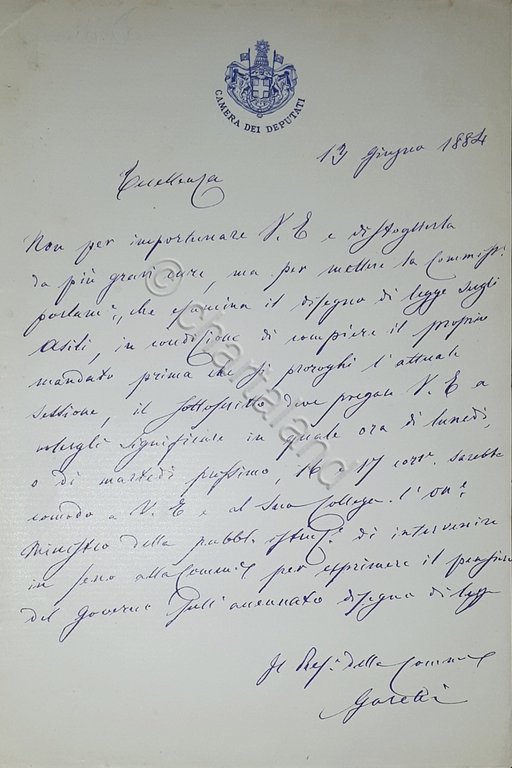 CAMERA DEI DEPUTATI
13 Giugno 1884
Eccellenza
Non per importunare V. E e distoglierla
da più gravi cure, ma per mettere la Commiss.e
parlam.e, che esamina il disegno di legge sugli
Asili, in condizione di compiere il proprio
mandato prima che si proroghi l'attuale
sessione, il sottoscritto deve pregare V. E a
volergli significare in quale ora di lunedì,
o di martedì prossimo, 16 o 17 corr.e sarebbe
comodo a V. E e al Suo Collega l'on.e
Ministro della pubbl. istruz.e di intervenire
in seno alla Comm.e per esprimere il pensiero
del Governo sull'accennato disegno di legge
Il Pres.e della Comm.e
© chartaland